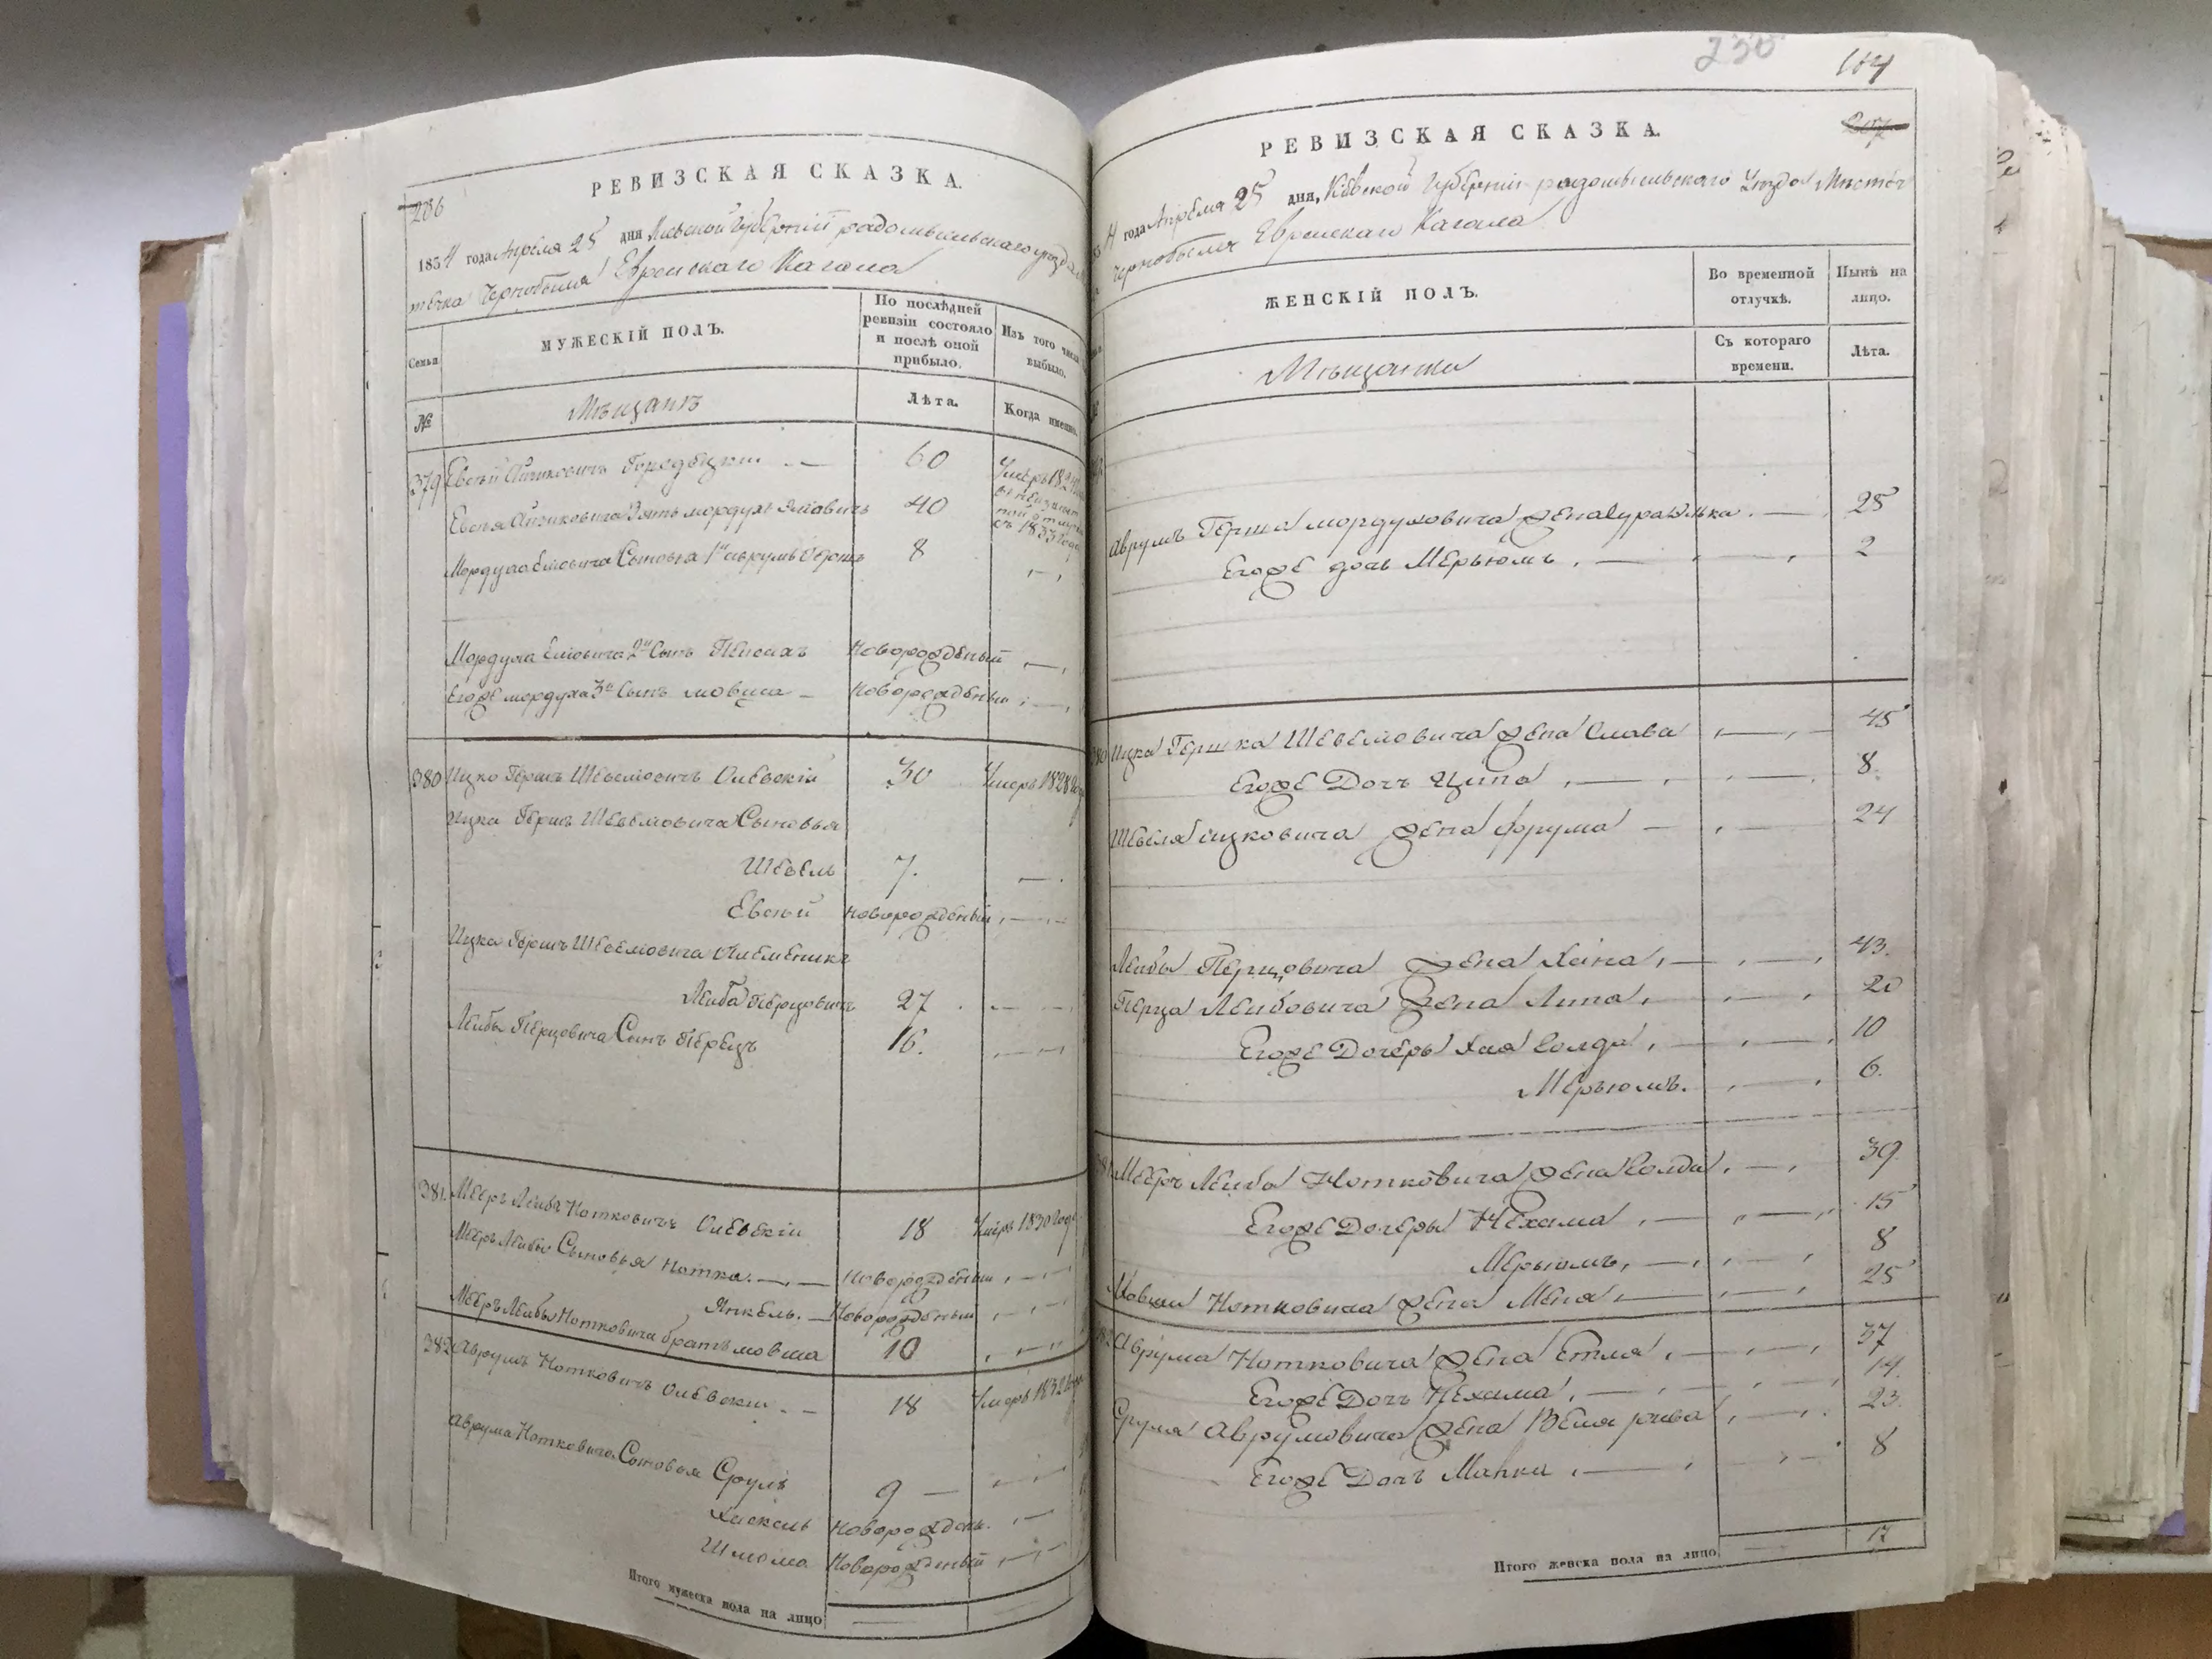 206
РЕВИЗСКАЯ СКАЗКА.
1834 года Апреля 25 дня Киевской Губернии радомысльскаго уезда
течка Чернобыля Еврейскаго Кагала
Семьи
МУЖЕСКІЙ ПОЛЪ.
По послѣдней ревизіи состояло и послѣ оной прибыло.
Изъ того числа выбыло.
№
Мещанъ
Лѣта.
Когда именно.
379 Евсей Айзиковичъ Городецкий 60 Умеръ 1824
Евсея Айзиковича Зять мордухъ Элиовичъ 40
съ 1833 года
Мордуха Елиовича Сыновья 1й аврумъ Гершъ 8
Мордуха Елиовича 2й Сынъ Пейсахъ Новорожденый
Егоже мордуха 3й Сынъ мовша Новорожденый
380 Ицко Гершъ Шевелиовичъ Олевскій 30 Умеръ 1828 года
Ицка Гершъ Шевелиовича Сыновья
Шевель 7.
Евсей новорожденый
Ицка Гершъ Шевелиовича Племеникъ
Лейба Перцовичъ 27
Лейбы Перцовича Сынъ Перецъ 16.
381. Мееръ Лейба Нотковичъ Олевскій 18 Умеръ 1830 года
Мееръ Лейбы Сыновья Нотка. Новорожденый
Янкель. Новорожденый
Мееръ Лейбы Нотковича братъ мовша 10
382 Аврумъ Нотковичъ Олевский 18 Умеръ 1832 года
Аврума Нотковича Сыновья Срулъ 9
Хаскель Новорожден.
Шлома Новорожденый
Итого мужеска пола на лицо
230
164
207
РЕВИЗСКАЯ СКАЗКА.
4 года Апреля 25 дня, Киевской Губернии радомысльскаго Уезда Местеч
Чернобыля Еврейскаго Кагала
ЖЕНСКІЙ ПОЛЪ.
Во временной отлучкѣ.
Нынѣ на лицо.
Мещанки
Съ котораго времени.
Лѣта.
Аврумъ Герша мордуховича жена 25
Егоже дочь Мерьюмъ 2
Ицка Гершка Шевелиовича жена Слава 45
Егоже Дочь Ципа 8.
Шевеля ицковича жена фрума 24
Лейбы Перцовича жена Хаина 43.
Перца Лейбовича жена Липа 20
Егоже Дочеры Хая Голда 10
Мерьюмъ. 6.
Мееръ Лейба Нотковича жена Голда 39
Егоже Дочеры Нехама 15
Мерьюмъ 8
Мовши Нотковича жена Меня 25
Аврума Нотковича жена Етля 37
Егоже Дочь Нехама 14.
Сруля Аврумовича жена Веля рива 23.
Егоже Дочь Манка 8
Итого женска пола на лицо 17